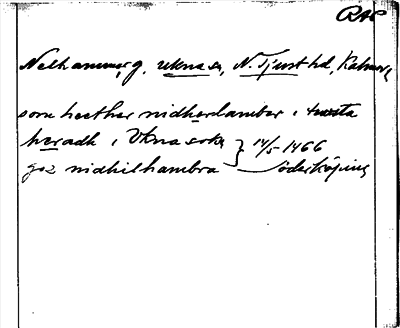 RAP
Nelhammar, g, Ukna sn, N. Tjust hd, Kalmar l
som heether nidherlambar i twsta
heradh i Vkna sokn } 14/5 1466
goz nidhilhambra Söderköping